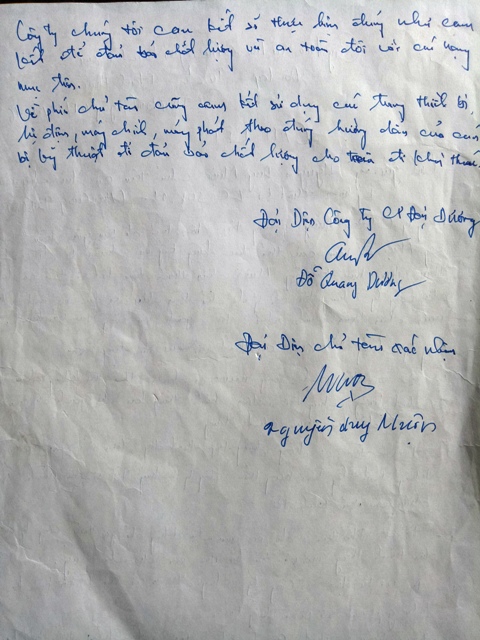 Công ty chúng tôi cam kết sẽ thực hiện đúng như cam
kết để đảm bảo chất lượng và an toàn đối với các hạng
mục trên.
Về phía chủ tàu cũng cam kết sử dụng các trang thiết bị,
hệ điện, máy chính, máy phát theo đúng hướng dẫn của cán
bộ kỹ thuật để đảm bảo chất lượng cho tàu đi khai thác.
Đại Diện Công Ty CP Đại Dương
Đỗ Quang Dương
Đại Diện chủ tàu xác nhận
Nguyễn duy Mười